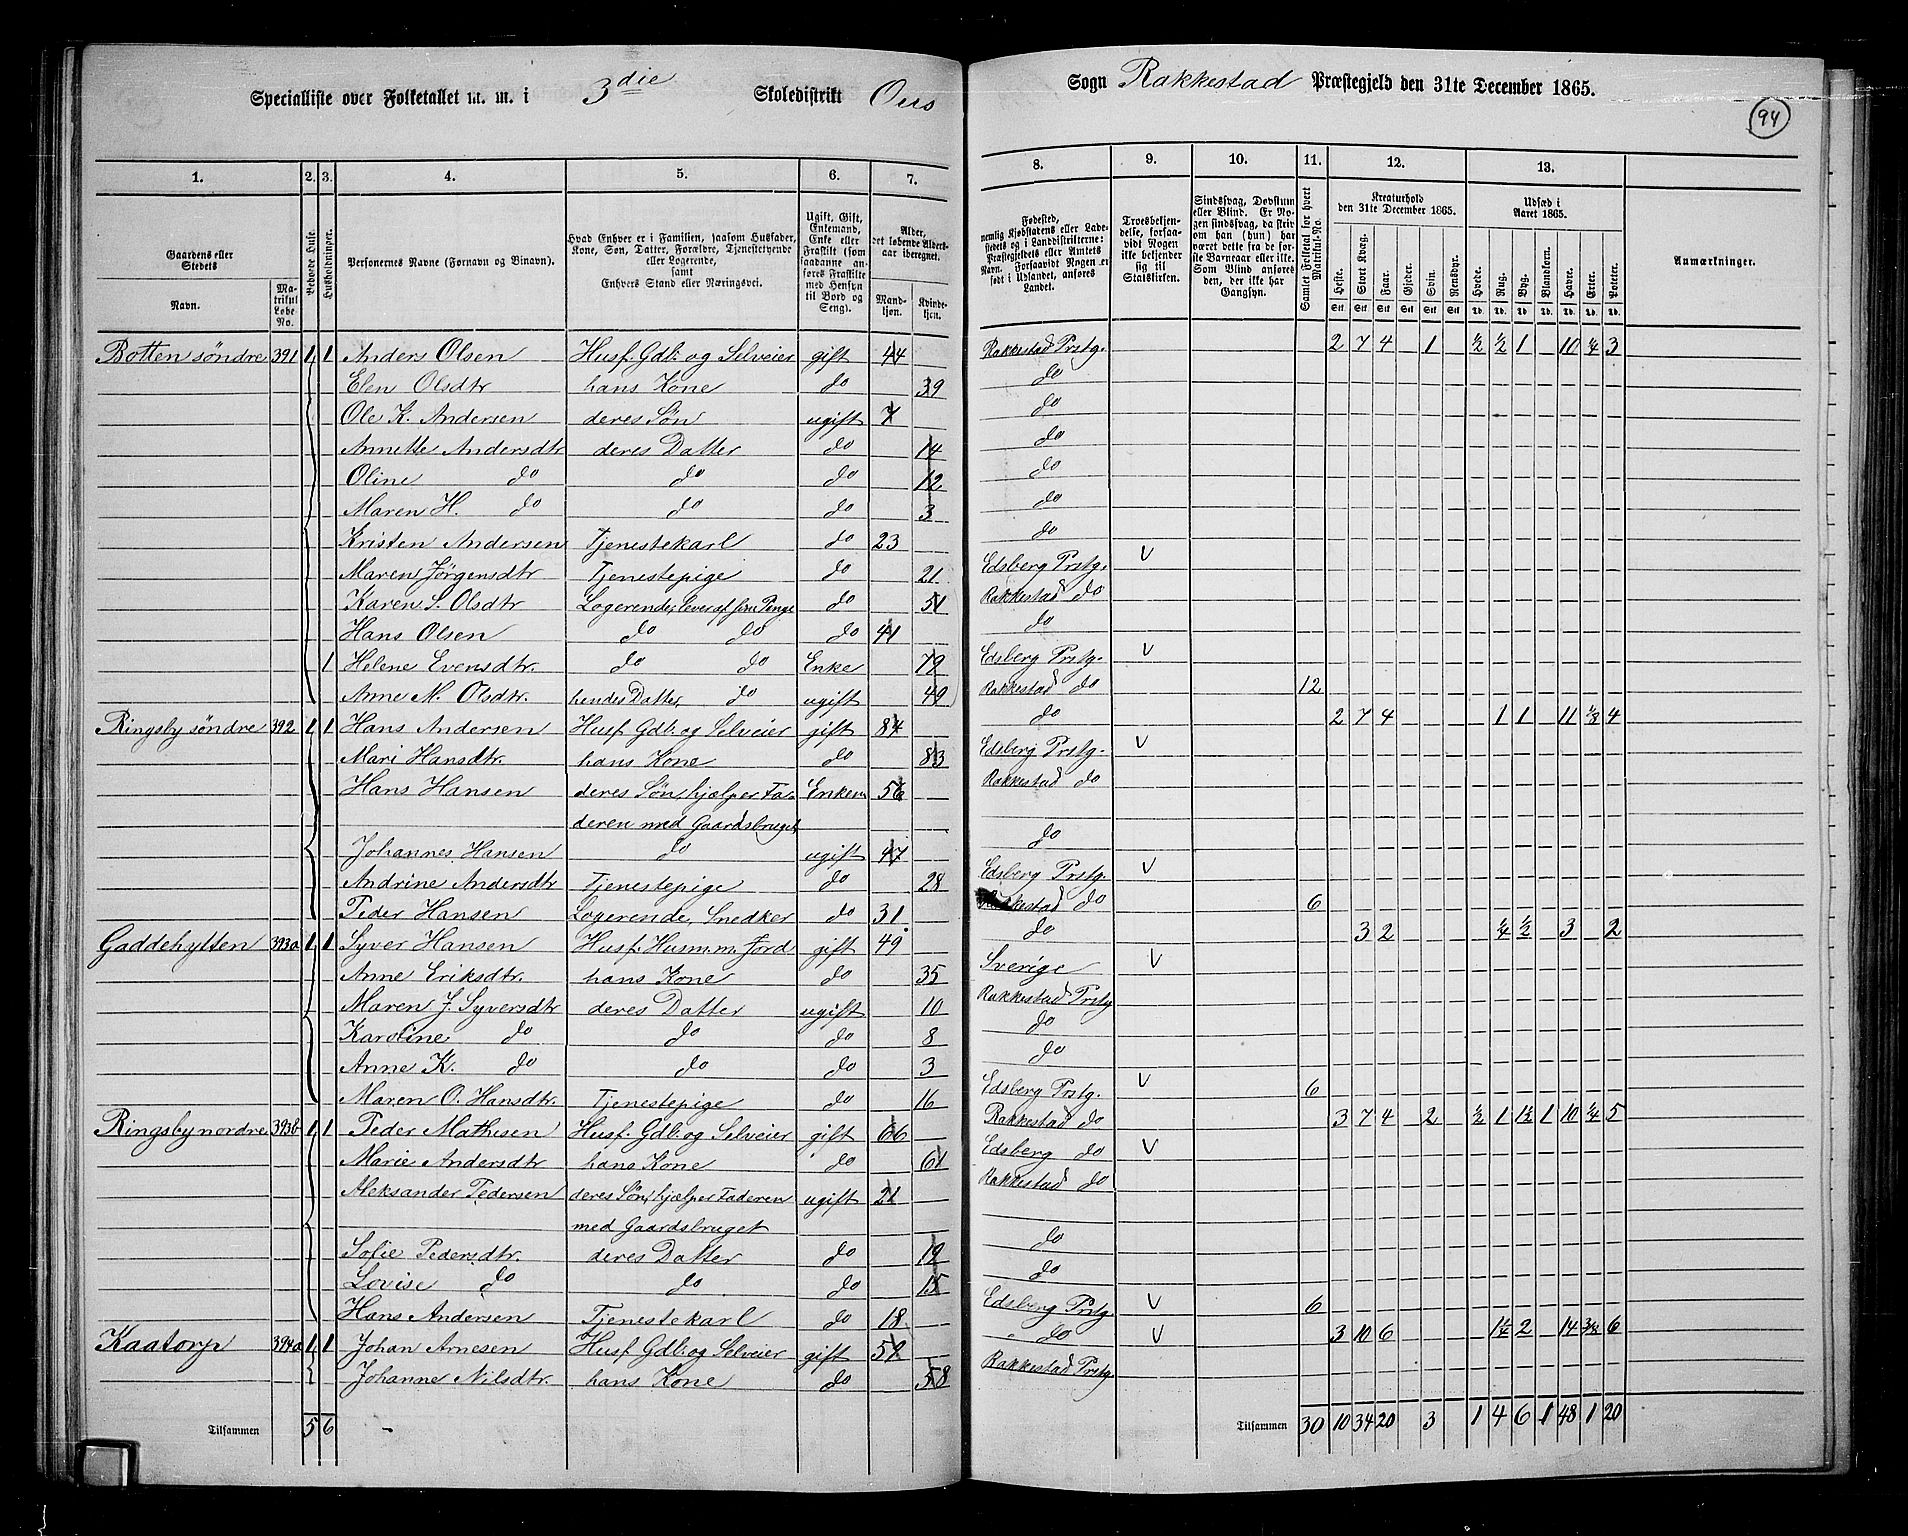 Specialliste over Folketallet m. m. i 3die Skoledistrikt Øus Sogn Rakkestad Præstegjeld den 31te December 1865.
94
1. 2. 3. 4. 5. 6. 7. 8. 9. 10. 11. 12. 13.
Gaardens eller Stedets
Navn. Matrikul Løbe No.
Beboede Huse.
Husholdninger.
Personernes Navne (Fornavn og Binavn).
Hvad Enhver er i Familien, saasom Husfader, Kone, Søn, Datter, Forældre, Tjenestetyende eller Logerende, samt Enhvers Stand eller Næringsvei.
Ugift, Gift, Enkemand, Enke eller Fraskilt (som saadanne anføres Fraskilte med Hensyn til Bord og Seng).
Alder, det løbende Alders-aar iberegnet.
Mandkjøn. Kvindekjøn.
Fødested, nemlig Kjøbstadens eller Ladestedets og i Landdistrikterne: Præstegjeldets eller Amtets Navn. Forsaavidt Nogen er født i Udlandet, anføres Landet.
Troesbekjendelse, forsaavidt Nogen ikke bekjender sig til Statskirken.
Sindssvag, Døvstum eller Blind. Er Nogen sindssvag, da skrives om han (hun) har været dette fra de første Barneaar eller ikke. Som Blind anføres den, der ikke har Gangsyn.
Samlet Folketal for hvert Matrikul-No.
Kreaturhold den 31te December 1865.
Heste. Stort Kvæg. Faar. Gjeder. Svin. Rensdyr.
Udsæd i Aaret 1865.
Hvede. Rug. Byg. Blandkorn. Havre. Erter. Poteter.
Anmærkninger.
Botten søndre 391 1 1 Anders Olsen Husf. Gdb. og Selveier gift 44 Rakkestad Prstg. 2 7 4 1 ½ ½ 1 10 ¼ 3
Elen Olsdtr hans Kone do 39 do
Ole K. Andersen deres Søn ugift 7 do
Annette Andersdtr deres Datter do 14 do
Oline do do do 12 do
Maren H. do do do 3 do
Kristen Andersen Tjenestekarl do 23 do
Maren Jørgensdtr Tjenestepige do 21 Edsberg Prstg. V
Karen S. Olsdtr Logerende, lever af sine Penge do 51 Rakkestad do
Hans Olsen do do do 41 do
1 Helene Evensdtr. do do Enke 79 Edsberg Prstg. V
Anne M. Olsdtr. hendes Datter, do ugift 49 Rakkestad do 12
Ringsby søndre 392 1 1 Hans Andersen Husf. Gdb. og Selveier gift 84 do 2 7 4 1 1 11 ⅛ 4
Mari Hansdtr. hans Kone do 83 Edsberg Prstg. V
Hans Hansen deres Søn, hjælper Fa- Enkem 56 Rakkestad do
deren med Gaardsbruget
Johannes Hansen do ugift 47 do
Andrine Andersdtr Tjenestepige do 28 Edsberg Prstg. V
Peder Hansen Logerende, Snedker do 31 Rakkestad do 6
Gaddehytten 393a 1 1 Syver Hansen Husf. Husm. m. Jord gift 49 do 3 2 ¼ ½ 3 2
Anne Eriksdtr. hans Kone do 35 Sverige V
Maren J. Syversdtr deres Datter ugift 10 Rakkestad Prstg
Karoline do do do 8 do
Anne K. do do do 3 do
Maren O. Hansdtr. Tjenestepige do 16 Edsberg Prstg. V 6
Ringsby nordre 393b 1 1 Peder Mathisen Husf. Gdb. og Selveier gift 66 Rakkestad do 3 7 4 2 ½ 1 1½ 1 10 ¼ 5
Marie Andersdtr hans Kone do 61 Edsberg do V
Aleksander Pedersen deres Søn, hjælper Faderen ugift 21 Rakkestad do
med Gaardsbruget
Sofie Pedersdtr. deres Datter do 19 do
Lovise do do do 15 do
Hans Andersen Tjenestekarl do 18 Edsberg Prstg V 6
Kaatorp 394a 1 1 Johan Arnesen Husf. Gdb. og Selveier gift 59 " do V 3 10 6 1¼ 2 14 ⅜ 6
Johanne Nilsdtr. hans Kone do 58 Rakkestad Prstg
Tilsammen 5 6 Tilsammen 30 10 34 20 3 1 4 6 1 48 1 20